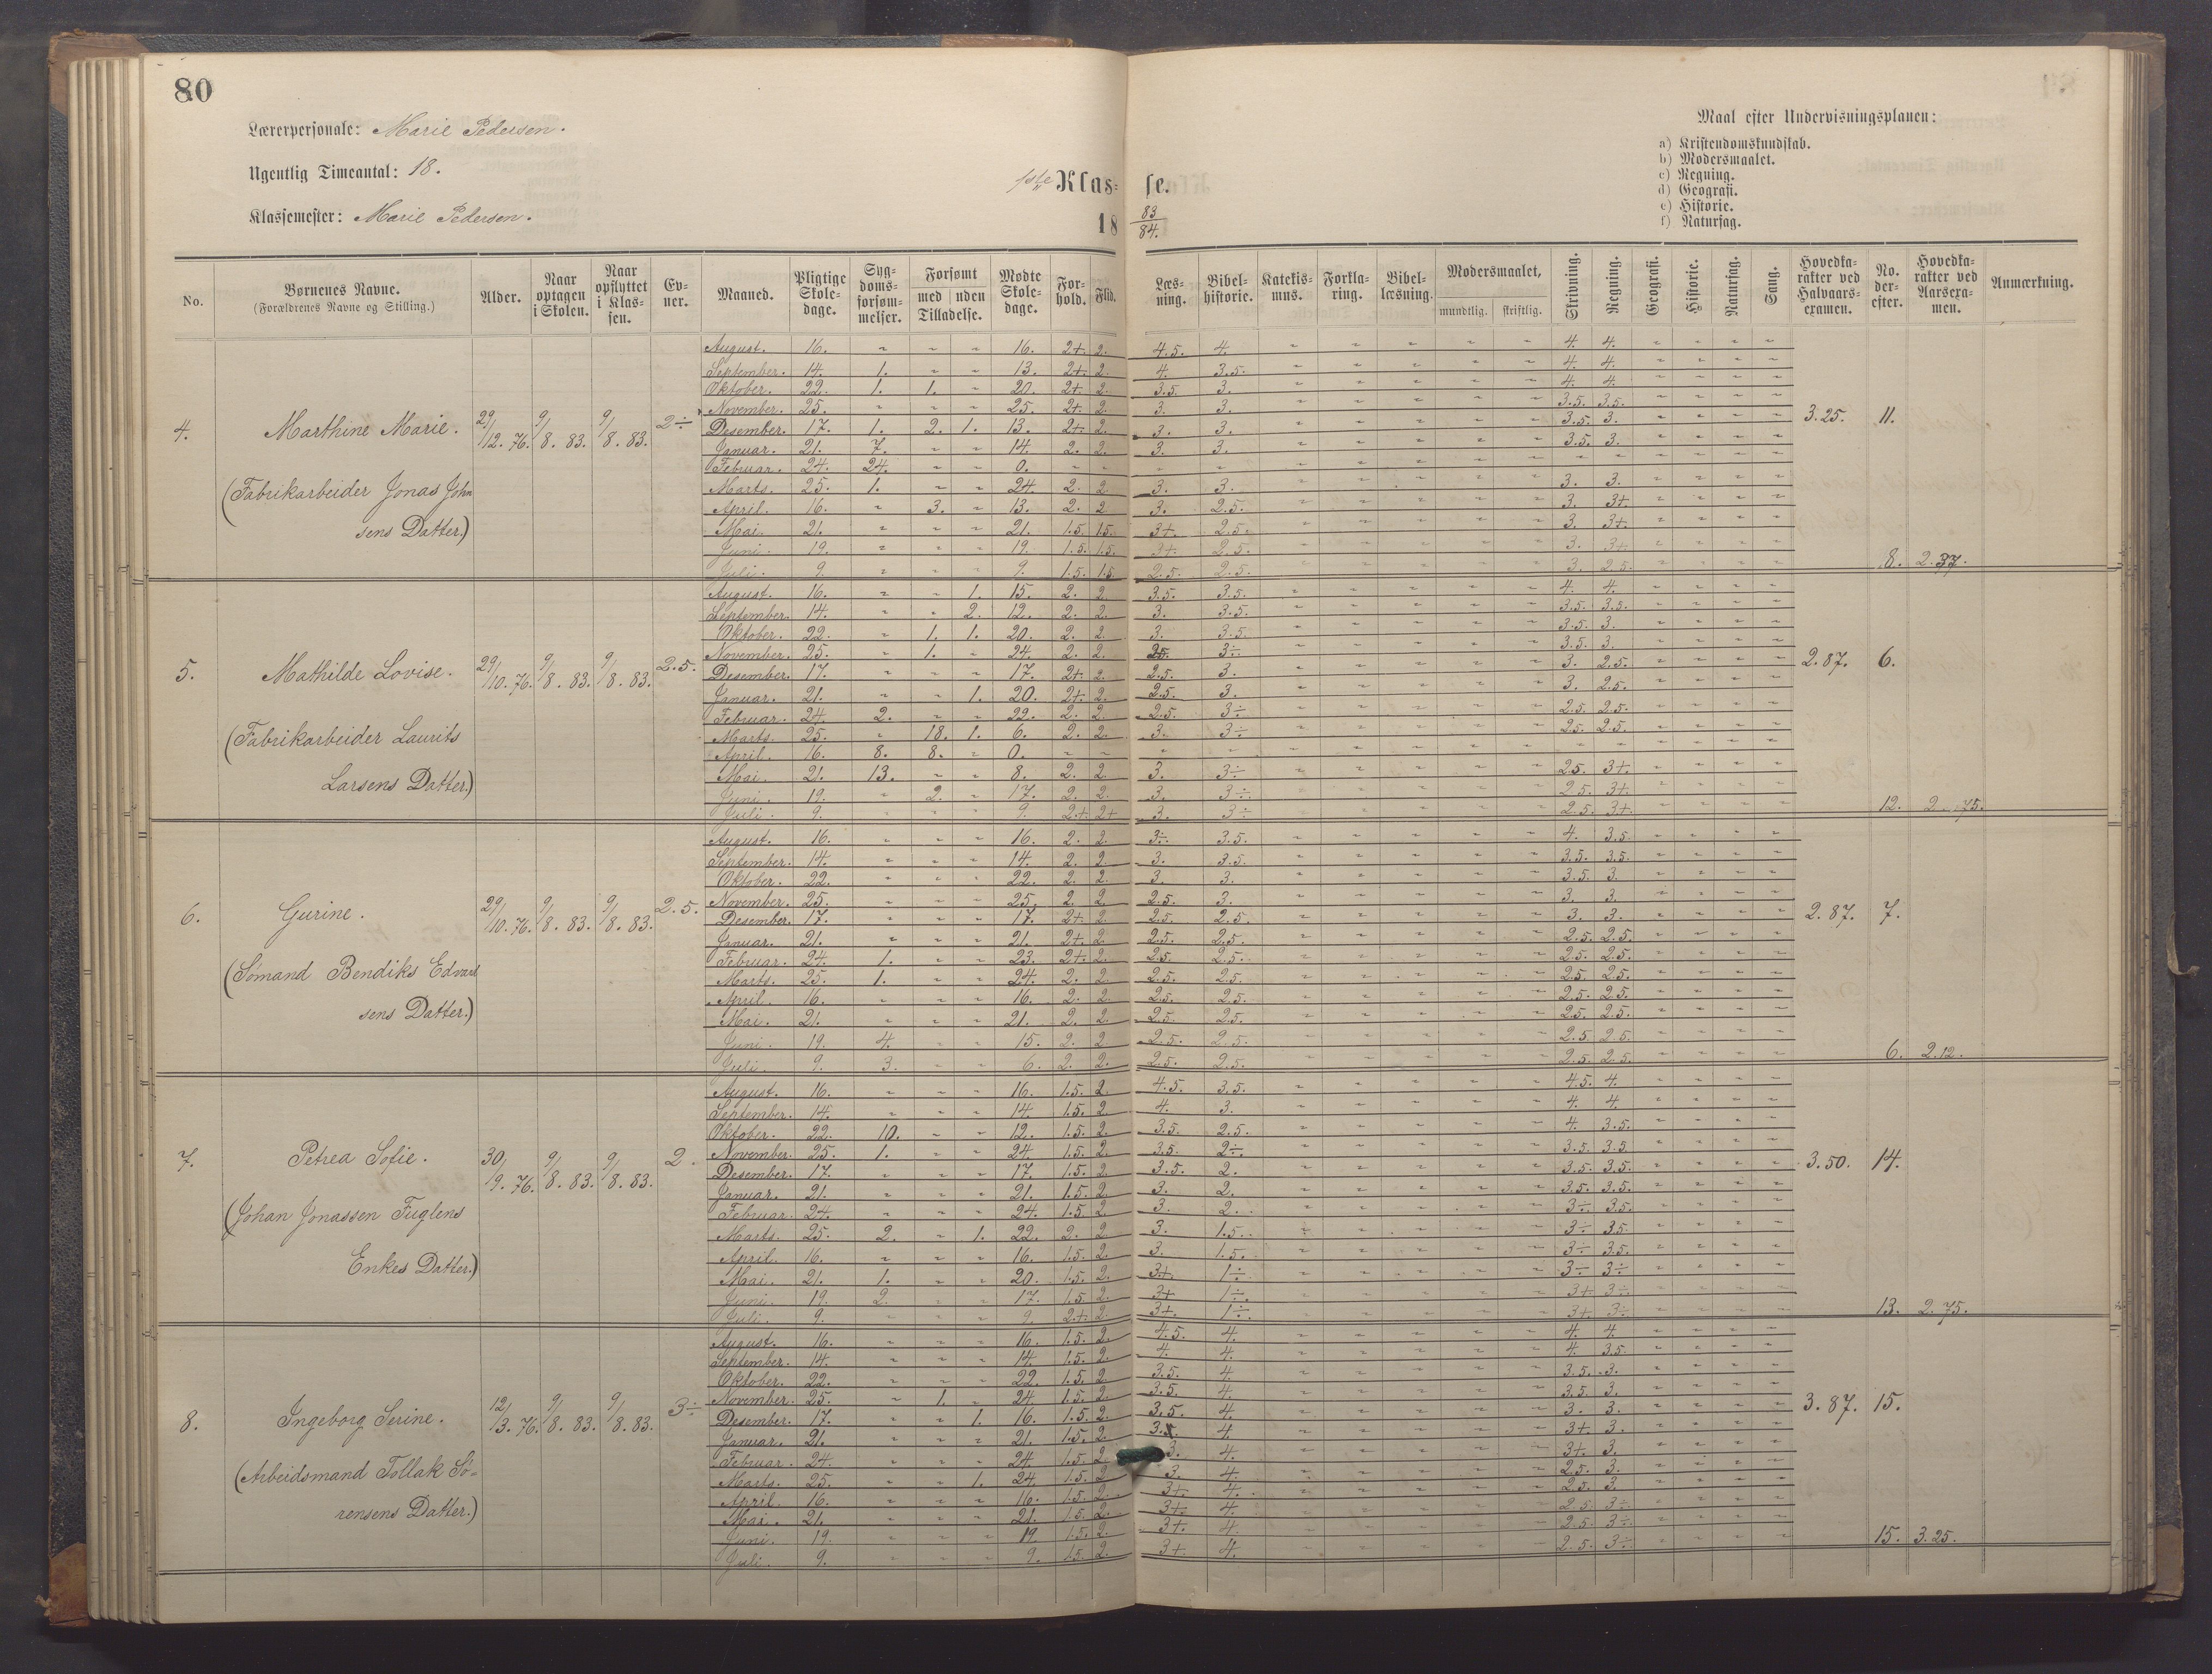 80
Lærerpersonale: Marie Pedersen.
Ugentlig Timeantal: 18.
Klassemester: Marie Pedersen.
1ste Klasse.
18 83/84.
Maal efter Undervisningsplanen:
a) Kristendomskundskab.
b) Modersmaalet.
c) Regning.
d) Geografi.
e) Historie.
f) Naturfag.
No. Børnenes Navne. (Forældrenes Navne og Stilling.) Alder. Naar optagen i Skolen. Naar opflyttet i Klassen. Evner. Maaned. Pligtige Skoledage. Sygdomsforsømmelser. Forsømt med uden Tilladelse. Mødte Skoledage. Forhold. Flid. Læsning. Bibelhistorie. Katekismus. Forklaring. Bibellæsning. Modersmaalet, mundtlig. skriftlig. Skrivning. Regning. Geografi. Historie. Naturfag. Sang. Hovedkarakter ved Halvaarsexamen. No. derefter. Hovedkarakter ved Aarsexamen. Anmærkning.
4. Marthine Marie. 29/12. 76. 9/8. 83. 9/8. 83. 2÷ 3.25. 11.
(Fabrikarbeider Jonas John
sens Datter.)
August. 16. " " " 16. 2+. 2. 4.5. 4. " " " " " 4. 4. " " " "
September. 14. 1. " " 13. 2+. 2. 4. 3.5. " " " " " 4. 4. " " " "
Oktober. 22. 1. 1. " 20. 2+. 2. 3.5. 3. " " " " " 4. 4. " " " "
November. 25. " " " 25. 2+. 2. 3. 3. " " " " " 3.5. 3.5. " " " "
Desember. 17. 1. 2. 1. 13. 2+. 2. 3. 3. " " " " " 3.5. 3. " " " "
Januar. 21. 7. " " 14. 2. 2. 3. 3. " " " " " 3.5. 3. " " " "
Februar. 24. 24. " " 0. " " " " " " " " " " " " " " "
Marts. 25. 1. " " 24. 2. 2. 3. 3. " " " " " 3. 3. " " " "
April. 16. " 3. " 13. 2. 2. 3. 2.5. " " " " " 3. 3+. " " " "
Mai. 21. " " " 21. 1.5. 1.5. 3+. 2.5. " " " " " 3. 3+. " " " "
Juni. 19. " " " 19. 1.5. 1.5. 3+. 2.5. " " " " " 3. 3+. " " " "
Juli. 9. " " " 9. 1.5. 1.5. 2.5. 2.5. " " " " " 3. 2.5. " " " " 8. 2.37.
5. Mathilde Lovise. 29/10. 76. 9/8. 83. 9/8. 83. 2.5. 2.87. 6.
(Fabrikarbeider Laurits
Larsens Datter.)
August. 16. " " 1. 15. 2. 2. 3.5. 3.5. " " " " " 4. 4. " " " "
September. 14. " " 2. 12. 2. 2. 3. 3.5. " " " " " 3.5. 3.5. " " " "
Oktober. 22. " 1. 1. 20. 2. 2. 3. 3.5. " " " " " 3.5. 3. " " " "
November. 25. " 1. " 24. 2. 2. 2.5. 3÷. " " " " " 3.5. 3. " " " "
Desember. 17. " " " 17. 2+. 2. 2.5. 3. " " " " " 3. 2.5. " " " "
Januar. 21. " " 1. 20. 2+. 2. 2.5. 3. " " " " " 3. 2.5. " " " "
Februar. 24. 2. " " 22. 2. 2. 2.5. 3÷ " " " " " 2.5. 2.5. " " " "
Marts. 25. " 18. 1. 6. 2. 2. 3. 3÷ " " " " " 2.5. 2.5. " " " "
April. 16. 8. 8. " 0. " " " " " " " " " " " " " " "
Mai. 21. 13. " " 8. 2. 2. 3. 3÷ " " " " " 2.5. 3+. " " " "
Juni. 19. " 2. " 17. 2. 2. 3. 3÷ " " " " " 2.5. 3+. " " " "
Juli. 9. " " " 9. 2+. 2+ 3. 3÷ " " " " " 2.5. 3+. " " " " 12. 2.75.
6. Gurine. 29/10. 76. 9/8. 83. 9/8. 83. 2.5. 2.87. 7.
(Sømand Bendiks Edvard
sens Datter.)
August. 16. " " " 16. 2. 2. 3÷. 3.5. " " " " " 4. 3.5. " " " "
September. 14. " " " 14. 2. 2. 3. 3.5. " " " " " 3.5. 3.5. " " " "
Oktober. 22. " " " 22. 2. 2. 3. 3. " " " " " 3.5. 3. " " " "
November. 25. " " " 25. 2. 2. 2.5. 3. " " " " " 3. 3. " " " "
Desember. 17. " " " 17. 2+. 2. 2.5. 2.5. " " " " " 3. 3. " " " "
Januar. 21. " " " 21. 2+. 2. 2.5. 2.5. " " " " " 2.5. 2.5. " " " "
Februar. 24. 1. " " 23. 2+. 2. 2.5. 2.5. " " " " " 2.5. 2.5. " " " "
Marts. 25. 1. " " 24. 2. 2. 2.5. 2.5. " " " " " 2.5. 2.5. " " " "
April. 16. " " " 16. 2. 2. 2.5. 2.5. " " " " " 2.5. 2.5. " " " "
Mai. 21. " " " 21. 2. 2. 2.5. 2.5. " " " " " 2.5. 2.5. " " " "
Juni. 19. 4. " " 15. 2. 2 2.5. 2.5. " " " " " 2.5. 2.5. " " " "
Juli. 9. 3. " " 6. 2. 2. 2.5. 2.5. " " " " " 2.5. 2.5. " " " " 6. 2.12.
7. Petrea Sofie. 30/9. 76. 9/8. 83. 9/8. 83. 2. 3.50. 14.
(Johan Jonassen Fuglens
Enkes Datter.)
August. 16. " " " 16. 1.5. 2. 4.5. 3.5. " " " " " 4.5. 4. " " " "
September. 14. " " " 14. 1.5. 2. 4. 3. " " " " " 4. 4. " " " "
Oktober. 22. 10. " " 12. 1.5. 2. 3.5. 2.5. " " " " " 4. 3.5. " " " "
November. 25. 1. " " 24. 1.5. 2. 3.5. 2÷. " " " " " 3.5. 3.5 " " " "
Desember. 17. " " " 17. 1.5. 2. 3.5. 2. " " " " " 3.5. 3.5. " " " "
Januar. 21. " " " 21. 1.5. 2. 3. 2. " " " " " 3.5. 3.5. " " " "
Februar. 24. " " " 24. 1.5. 2. 3. 2. " " " " " 3÷ 3.5. " " " "
Marts. 25. 2. " 1. 22. 2. 2. 3. 1.5. " " " " " 3÷ 3.5. " " " "
April. 16. " " " 16. 1.5. 2. 3. 1.5. " " " " " 3÷ 3.5. " " " "
Mai. 21. 1. " " 20. 1.5. 2. 3+. 1÷. " " " " " 3÷ 3÷ " " " "
Juni. 19. 2. " " 17. 1.5. 2. 3+ 1÷. " " " " " 3+ 3÷ " " " "
Juli. 9. " " " 9. 2+. 2. 3+. 1÷. " " " " " 3+ 3÷ " " " " 13. 2.75.
8. Ingeborg Serine. 12/3. 76. 9/8. 83. 9/8. 83. 3÷ 3.87. 15.
(Arbeidsmand Tollak Sö-
rensens Datter.)
August. 16. " " " 16. 1.5. 2. 4.5. 4. " " " " " 4. 4. " " " "
September. 14. " " " 14. 1.5. 2. 4. 4. " " " " " 4. 3.5. " " " "
Oktober. 22. " " " 22. 1.5. 2. 3.5. 4. " " " " " 3.5. 3. " " " "
November. 25. " 1. " 24. 1.5. 2. 3.5. 4. " " " " " 3.5. 3. " " " "
Desember. 17. " " 1. 16. 1.5. 2. 3.5. 4. " " " " " 3. 3. " " " "
Januar. 21. " " " 21. 1.5. 2. 4. " " " " " 3+. 3. " " " "
Februar. 24. " " " 24 1.5. 2 3. 4. " " " " " 3+. 3. " " " "
Marts. 25. " " 1. 24. 1.5. 2 3. 4. " " " " " 2.5. 3. " " " "
April. 16. " " " 16. 1.5. 2. 3+. 4. " " " " " 2.5. 3. " " " "
Mai. 21. " " " 21. 1.5. 2. 3+. 4. " " " " " 2.5. 3÷ " " " "
Juni. 19. " " " 19 1.5. 2. 3+. 4. " " " " " 2.5. 3÷ " " " "
Juli. 9. " " " 9. 1.5. 2. 3+. 4. " " " " " 2.5. 3÷ " " " " 15. 3.25.